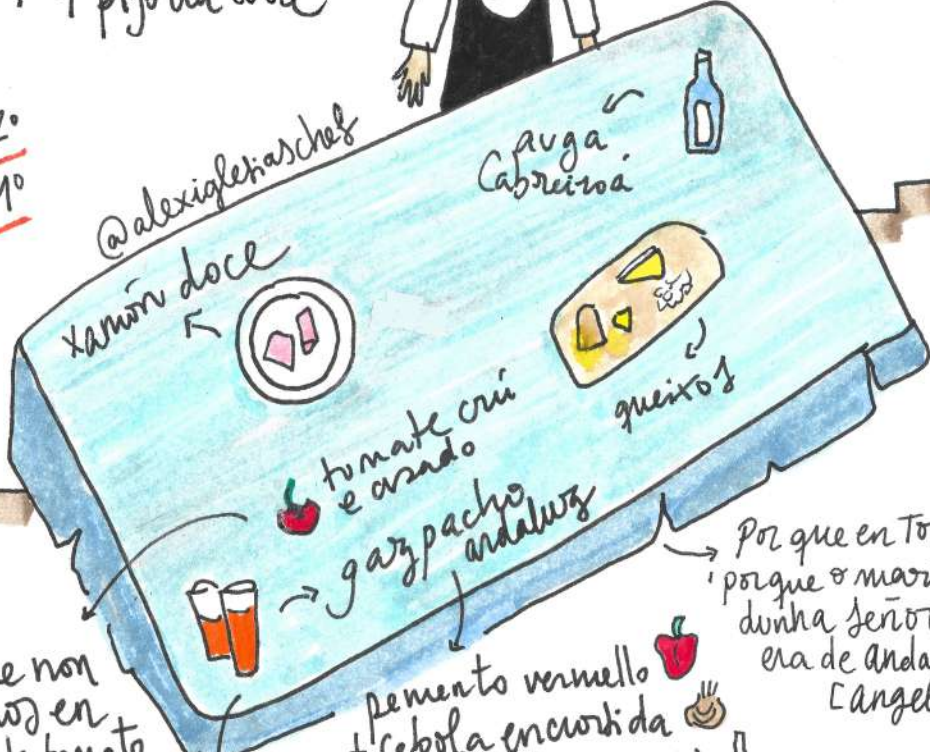 @alexiglesiaschef
auga
Cabreiroá
xamón doce
queixos
tomate crú
e asado
gazpacho
andaluz
Por que en To
porque o mar
dunha señor
era de anda
[angel
e non
os en
tomato
pemento vermello
+ cebola encurtida